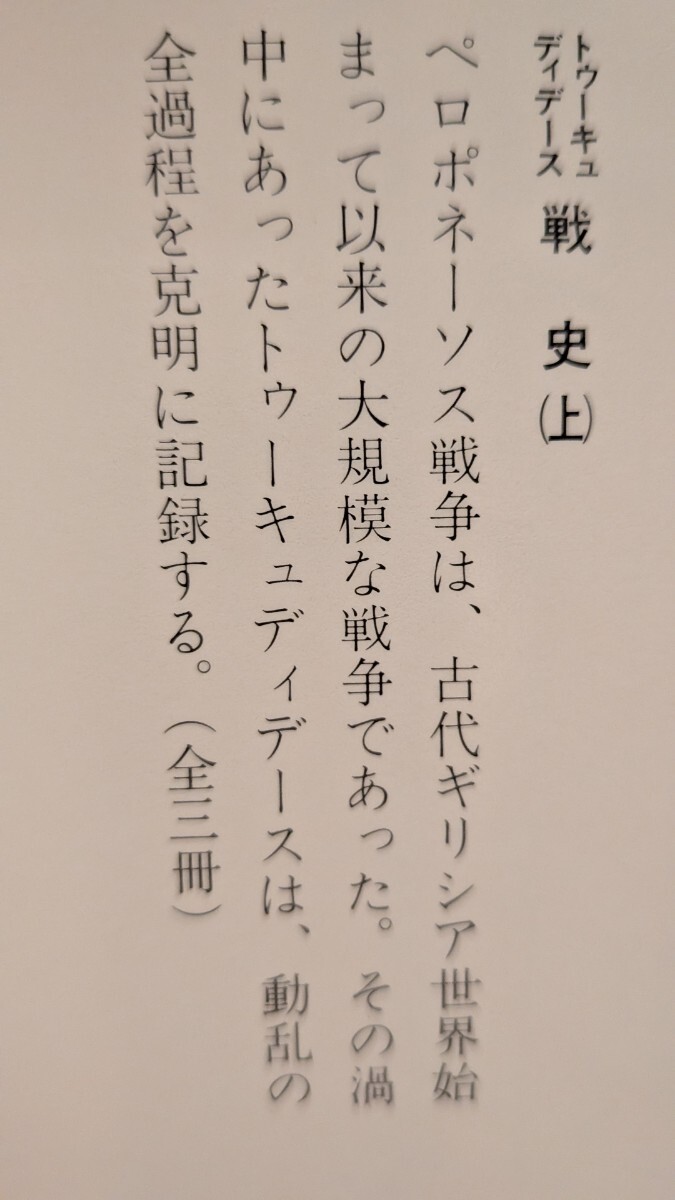 トゥーキュ
ディデース
戦 史 (上)
ペロポネーソス戦争は、古代ギリシア世界始
まって以来の大規模な戦争であった。その渦
中にあったトゥーキュディデースは、動乱の
全過程を克明に記録する。（全三冊）